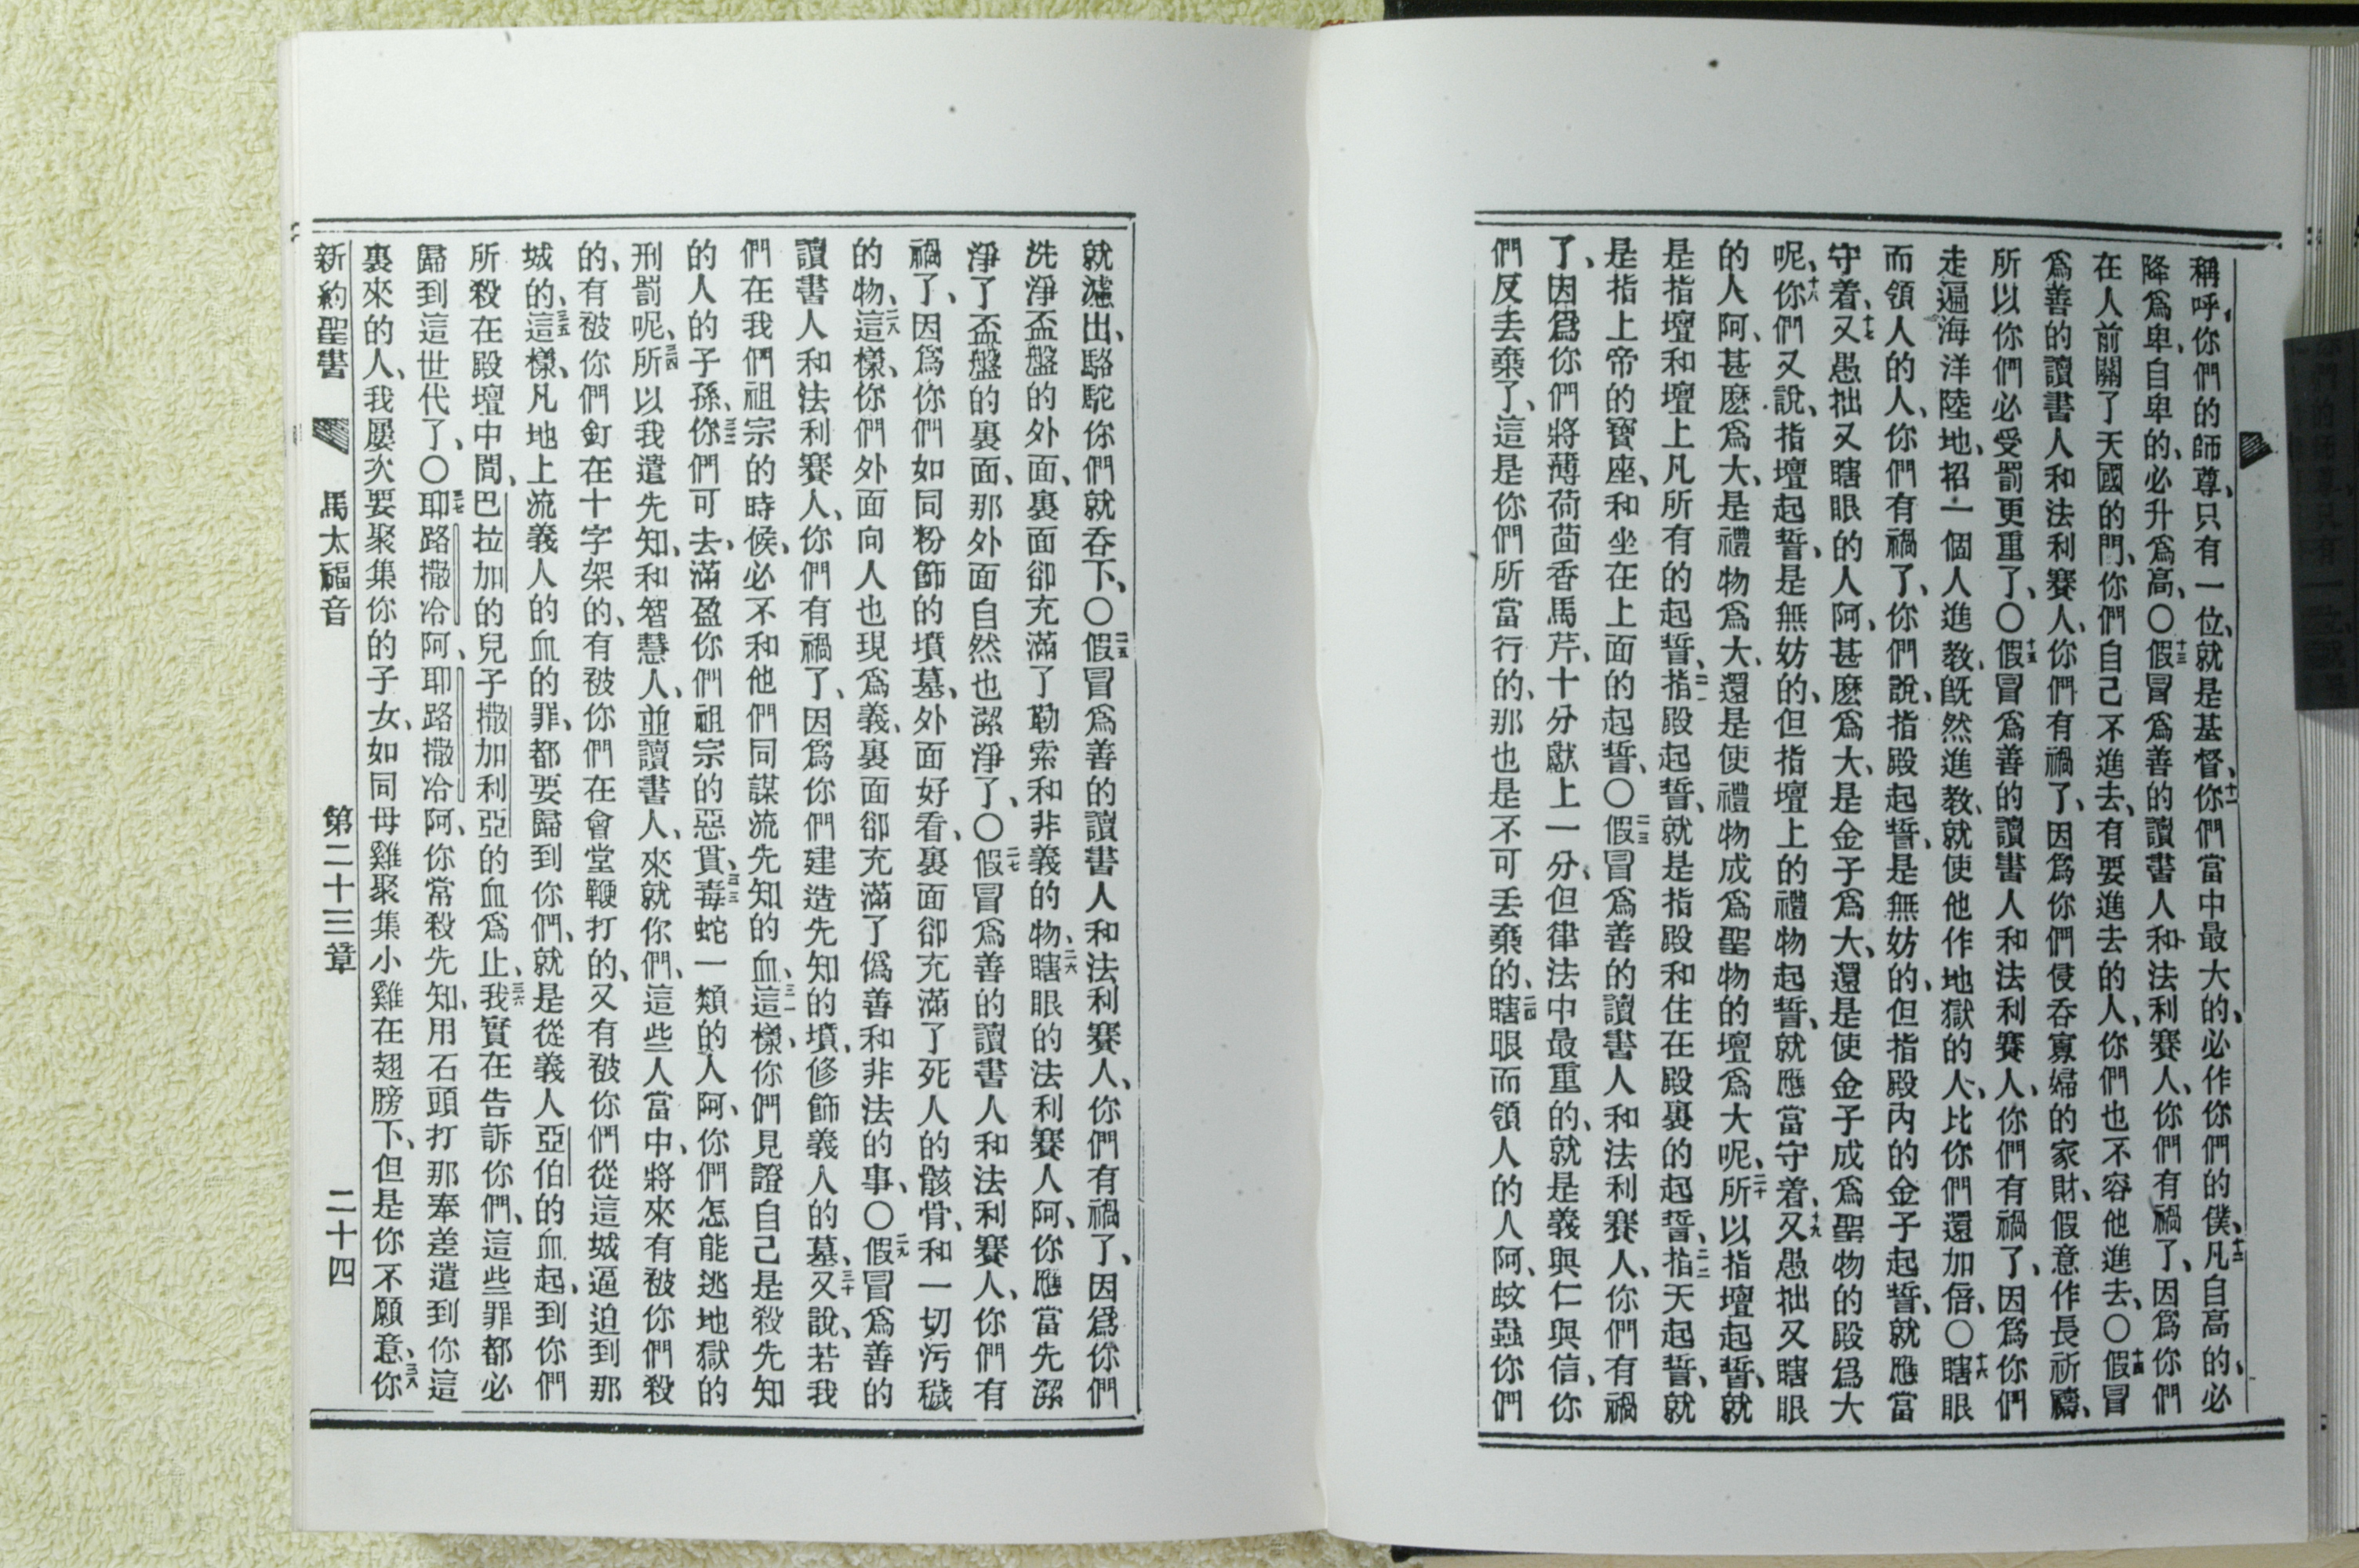 稱呼、你們的師尊、只有一位、就是基督、十一你們當中最大的、必作你們的僕、十二凡自高的、必
降爲卑、自卑的、必升爲高、〇十三假冒爲善的讀書人和法利賽人、你們有禍了、因爲你們
在人前關了天國的門、你們自己不進去、有要進去的人、你們也不容他進去、〇十四假冒
爲善的讀書人和法利賽人、你們有禍了、因爲你們侵吞寡婦的家財、假意作長祈禱、
所以你們必受罰更重了、〇十五假冒爲善的讀書人和法利賽人、你們有禍了、因爲你們
走遍海洋陸地、招一個人進教、旣然進教、就使他作地獄的人、比你們還加倍、〇十六瞎眼
而領人的人、你們有禍了、你們說、指殿起誓、是無妨的、但指殿內的金子起誓、就應當
守着、十七又愚拙又瞎眼的人阿、甚麽爲大、是金子爲大、還是使金子成爲聖物的殿爲大
呢、十八你們又說、指壇起誓、是無妨的、但指壇上的禮物起誓、就應當守着、十九又愚拙又瞎眼
的人阿、甚麽爲大、是禮物爲大、還是使禮物成爲聖物的壇爲大呢、二十所以指壇起誓、就
是指壇和壇上凡所有的起誓、二一指殿起誓、就是指殿和住在殿裏的起誓、二二指天起誓、就
是指上帝的寶座、和坐在上面的起誓、〇二三假冒爲善的讀書人和法利賽人、你們有禍
了、因爲你們將薄荷茴香馬芹、十分獻上一分、但律法中最重的、就是義與仁與信、你
們反丢棄了、這是你們所當行的、那也是不可丢棄的、二四瞎眼而領人的人阿、蚊蟲你們
就濾出、駱駝你們就吞下、〇二五假冒爲善的讀書人和法利賽人、你們有禍了、因爲你們
洗淨盃盤的外面、裏面卻充滿了勒索和非義的物、二六瞎眼的法利賽人阿、你應當先潔
淨了盃盤的裏面、那外面自然也潔淨了、〇二七假冒爲善的讀書人和法利賽人、你們有
禍了、因爲你們如同粉飾的墳墓、外面好看、裏面卻充滿了死人的骸骨、和一切污穢
的物、二八這樣、你們外面向人也現爲義、裏面卻充滿了僞善和非法的事、〇二九假冒爲善的
讀書人和法利賽人、你們有禍了、因爲你們建造先知的墳、修飾義人的墓、三十又說、若我
們在我們祖宗的時候、必不和他們同謀流先知的血、三一這樣、你們見證自己是殺先知
的人的子孫、三二你們可去、滿盈你們祖宗的惡貫、三三毒蛇一類的人阿、你們怎能逃地獄的
刑罰呢、三四所以我遣先知、和智慧人、並讀書人、來就你們、這些人當中、將來有被你們殺
的、有被你們釘在十字架的、有被你們在會堂鞭打的、又有被你們從這城逼迫到那
城的、三五這樣、凡地上流義人的血的罪、都要歸到你們、就是從義人亞伯的血起、到你們
所殺在殿壇中間、巴拉加的兒子撒加利亞的血爲止、三六我實在告訴你們、這些罪都必
歸到這世代了、〇三七耶路撒冷阿、耶路撒冷阿、你常殺先知、用石頭打那奉差遣到你這
裏來的人、我屢次要聚集你的子女、如同母雞聚集小雞在翅膀下、但是你不願意、三八你
新約聖書 馬太福音 第二十三章 二十四